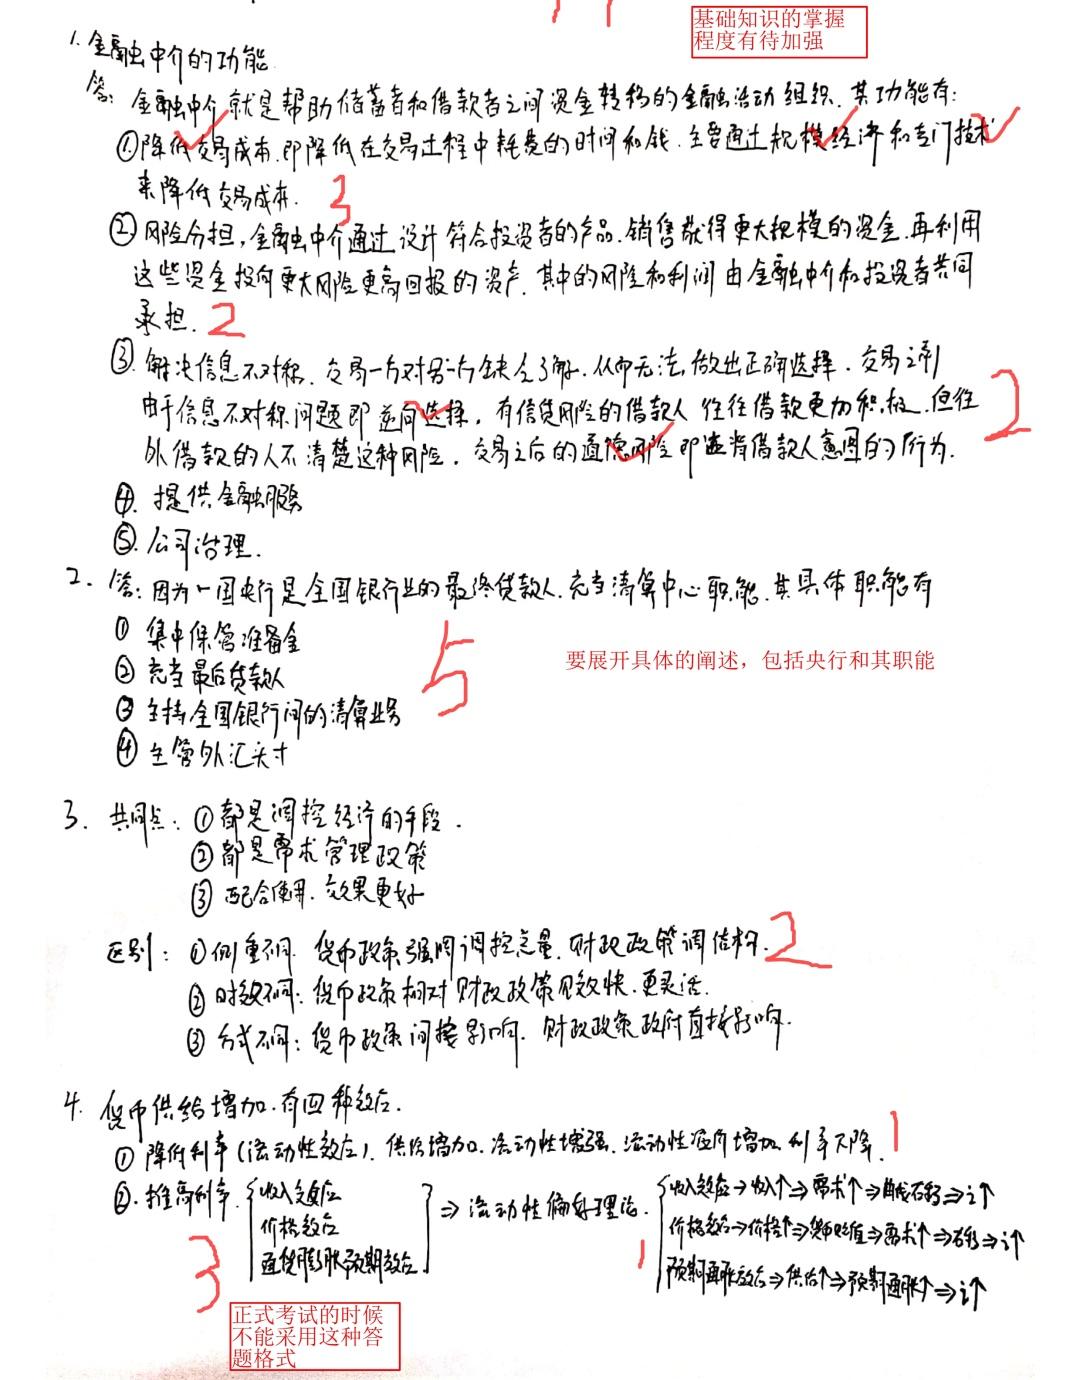 基础知识的掌握
程度有待加强
1. 金融中介的功能
答: 金融中介就是帮助储蓄者和借款者之间资金转移的金融活动组织. 其功能有:
①降低交易成本.即降低在交易过程中耗费的时间和钱.主要通过规模经济和专门技术
来降低交易成本. 3
②风险分担,金融中介通过设计符合投资者的产品.销售获得更大规模的资金.再利用
这些资金投向更大风险更高回报的资产.其中的风险和利润由金融中介和投资者共同
承担. 2
③.解决信息不对称.交易一方对另一方缺乏了解.从而无法做出正确选择.交易之前
由于信息不对称问题即逆向选择.有信贷风险的借款人往往借款更加积极.但往 2
外借款的人不清楚这种风险.交易之后的道德风险即违背借款人意图的行为.
④.提供金融服务
⑤.公司治理.
2. 答:因为一国央行是全国银行业的最终贷款人.充当清算中心职能.其具体职能有
① 集中保管准备金
② 充当最后贷款人 5 要展开具体的阐述，包括央行和其职能
③ 主持全国银行间的清算业务
④ 主管外汇头寸
3. 共同点: ①都是调控经济的手段.
②都是需求管理政策
③ 配合使用.效果更好
区别: ①侧重不同. 货币政策强调调控总量.财政政策调结构. 2
② 时效不同: 货币政策相对财政政策见效快.更灵活.
③ 方式不同: 货币政策间接影响. 财政政策政府直接影响.
4. 货币供给增加.有四种效应.
① 降低利率(流动性效应). 供给增加.流动性增强. 利率下降. 1
②.推高利率. 收入效应 ⇒ 流动性偏好理论. 收入效应→收入↑⇒需求↑⇒曲线右移⇒i↑
价格效应 价格效应→价格↑⇒货币贬值⇒需求↑⇒右移⇒i↑
3 通货膨胀预期效应. 1 预期通胀效应⇒供给↑⇒预期通胀↑⇒i↑
正式考试的时候
不能采用这种答
题格式